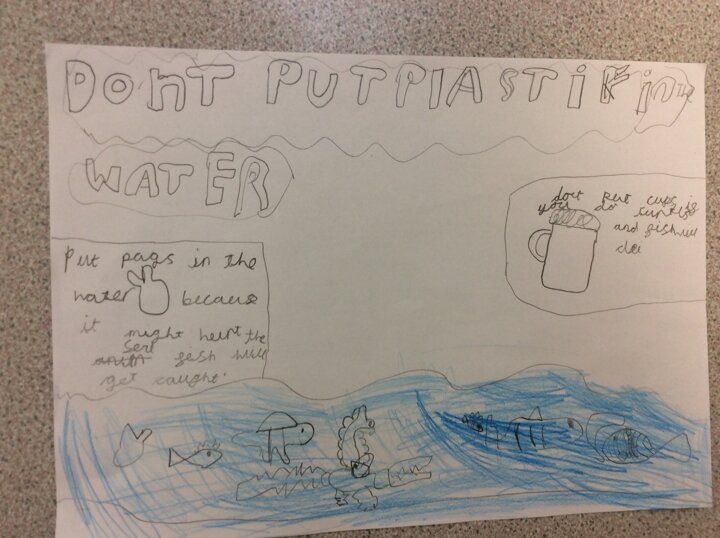 DonT PUT PlASTiK in the
WATER
Put pags in the
water because
it might heurt the
fish will
get caught.
dont put cups is
you do
and fish will